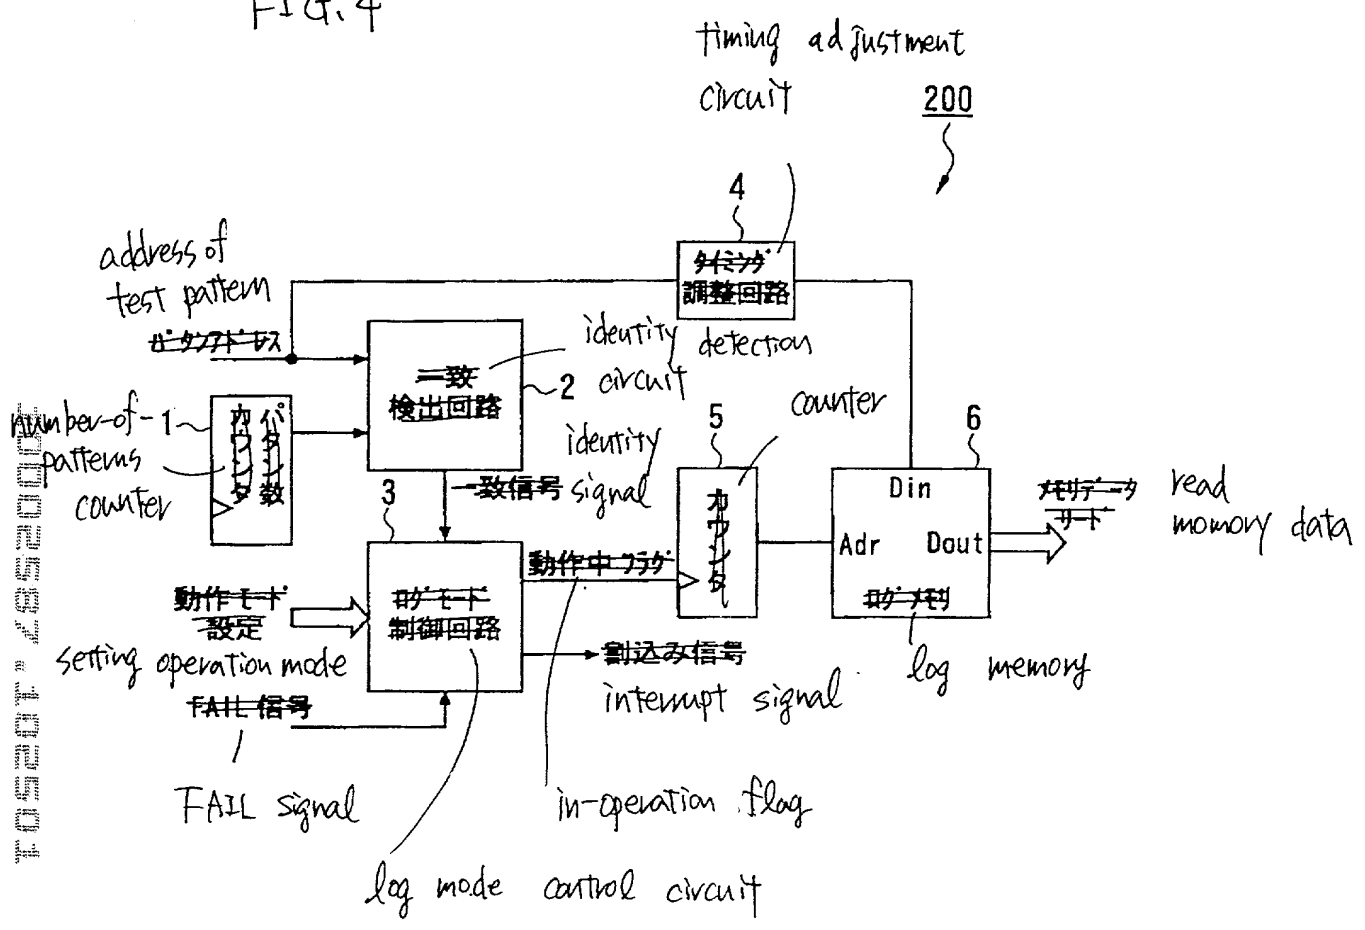 FIG. 4
timing adjustment
circuit
200
4
address of
test pattern
パタンアドレス
タイミング
調整回路
identity detection
circuit
一致
検出回路
2
number-of-
patterns
counter
1
パタン数
カウンタ
identity
signal
一致信号
3
5
counter
カウンタ
6
Din
Adr
Dout
ログメモリ
log memory
メモリデータ
リード
read
momory data
動作モード
設定
setting operation mode
ログモード
制御回路
動作中フラグ
割込み信号
interrupt signal
FAIL信号
FAIL signal
in-operation flag
log mode control circuit
10002587.102501